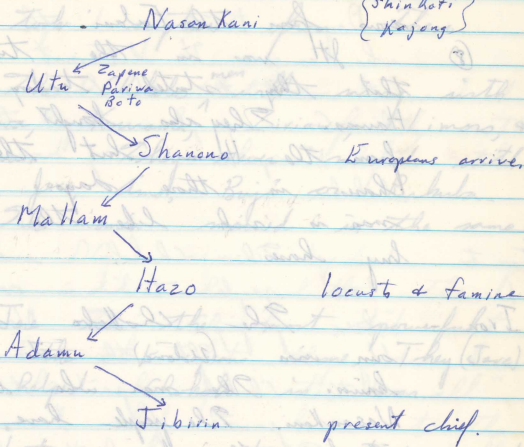 Nasan Kani { Shin Koti }
{ Kajong }
Utu Zapene
Pariwa
Boto
Shanono Europeans arrive.
Mallam
Hazo locusts & famine
Adamu
Jibirin present chief.